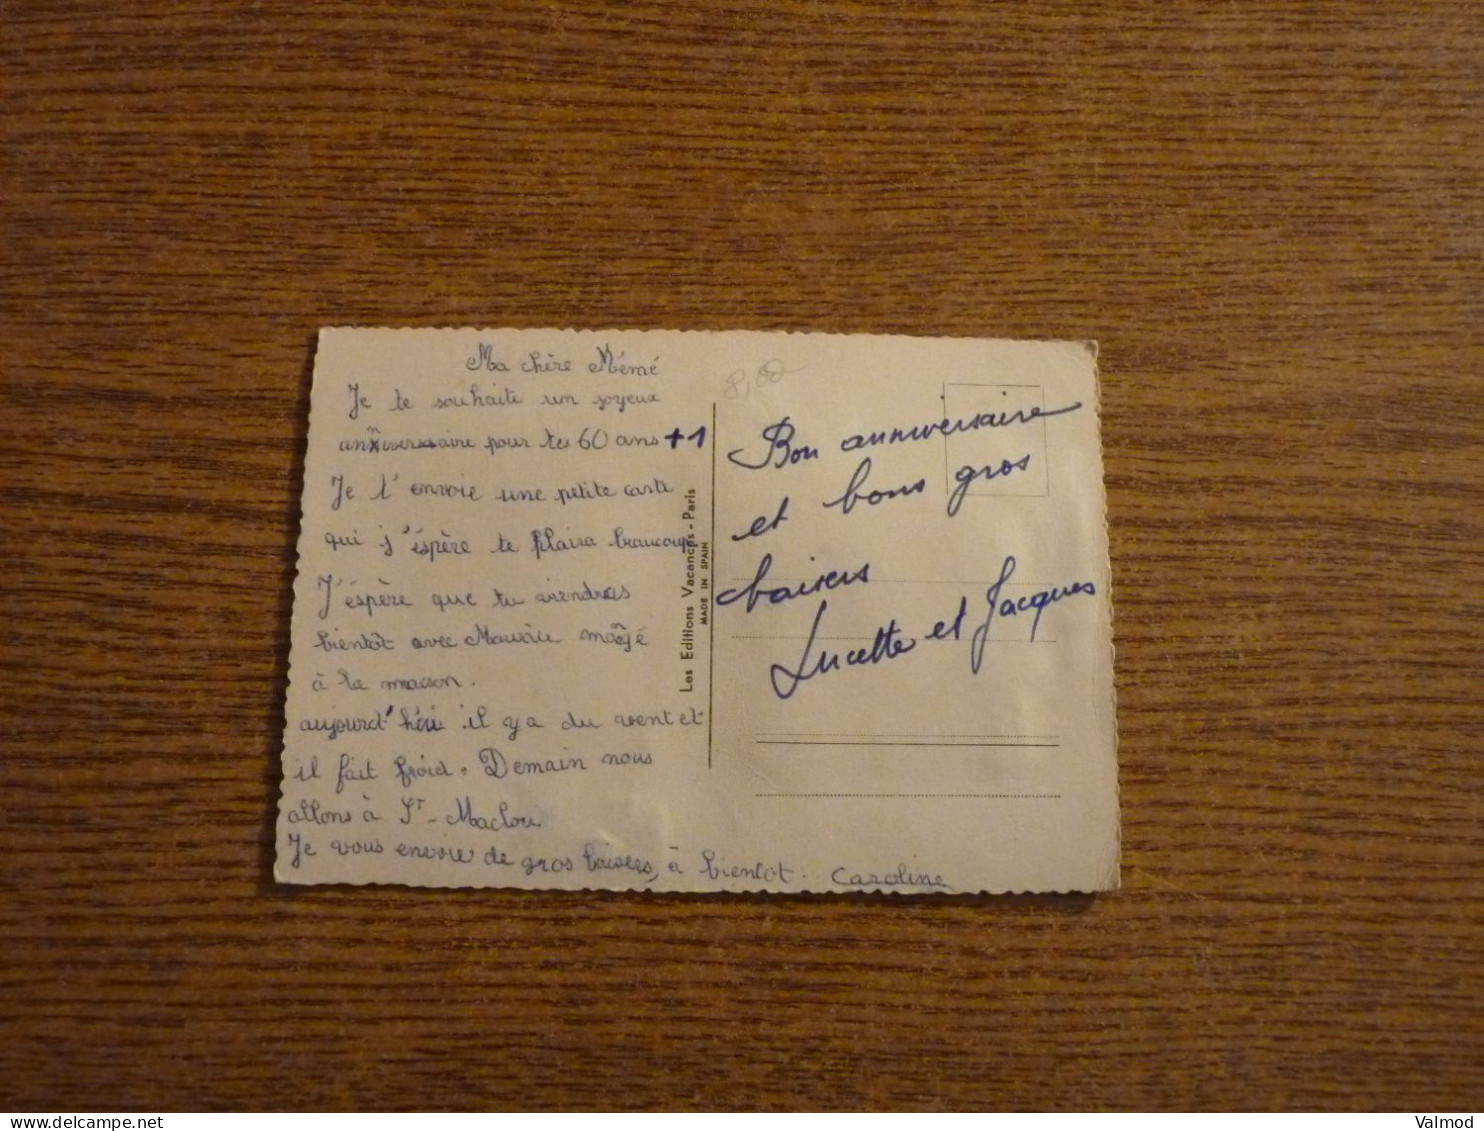 Ma chère Mémé
Je te souhaite un joyeux
anniversaire pour tes 60 ans +1
Je t'envoie une petite carte
qui j'éspère te plaira beaucoup
J'éspère que tu viendras
bientôt avec Maurice mangé
à la maison.
aujourd'hui il y a du vent et
il fait froid. Demain nous
allons à St-Maclou.
Je vous envoie de gros baisers, à bientot. Caroline
Les Editions Vacances - Paris
MADE IN SPAIN
8,00
Bon anniversaire
et bons gros
baisers
Lucette et Jacques
Valmod
www.delcampe.net